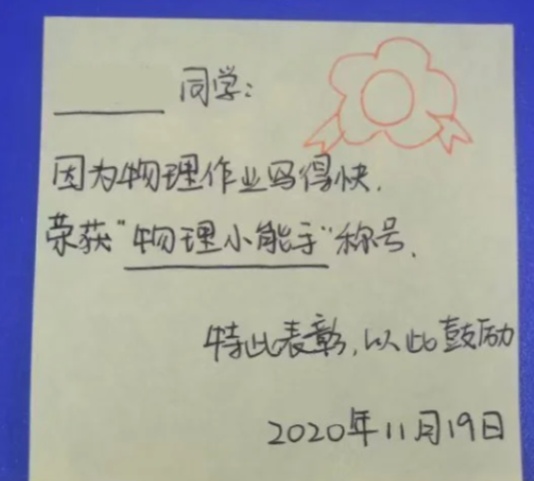 ______ 同学:
因为物理作业写得快.
荣获“物理小能手”称号.
特此表彰,以此鼓励
2020年11月19日